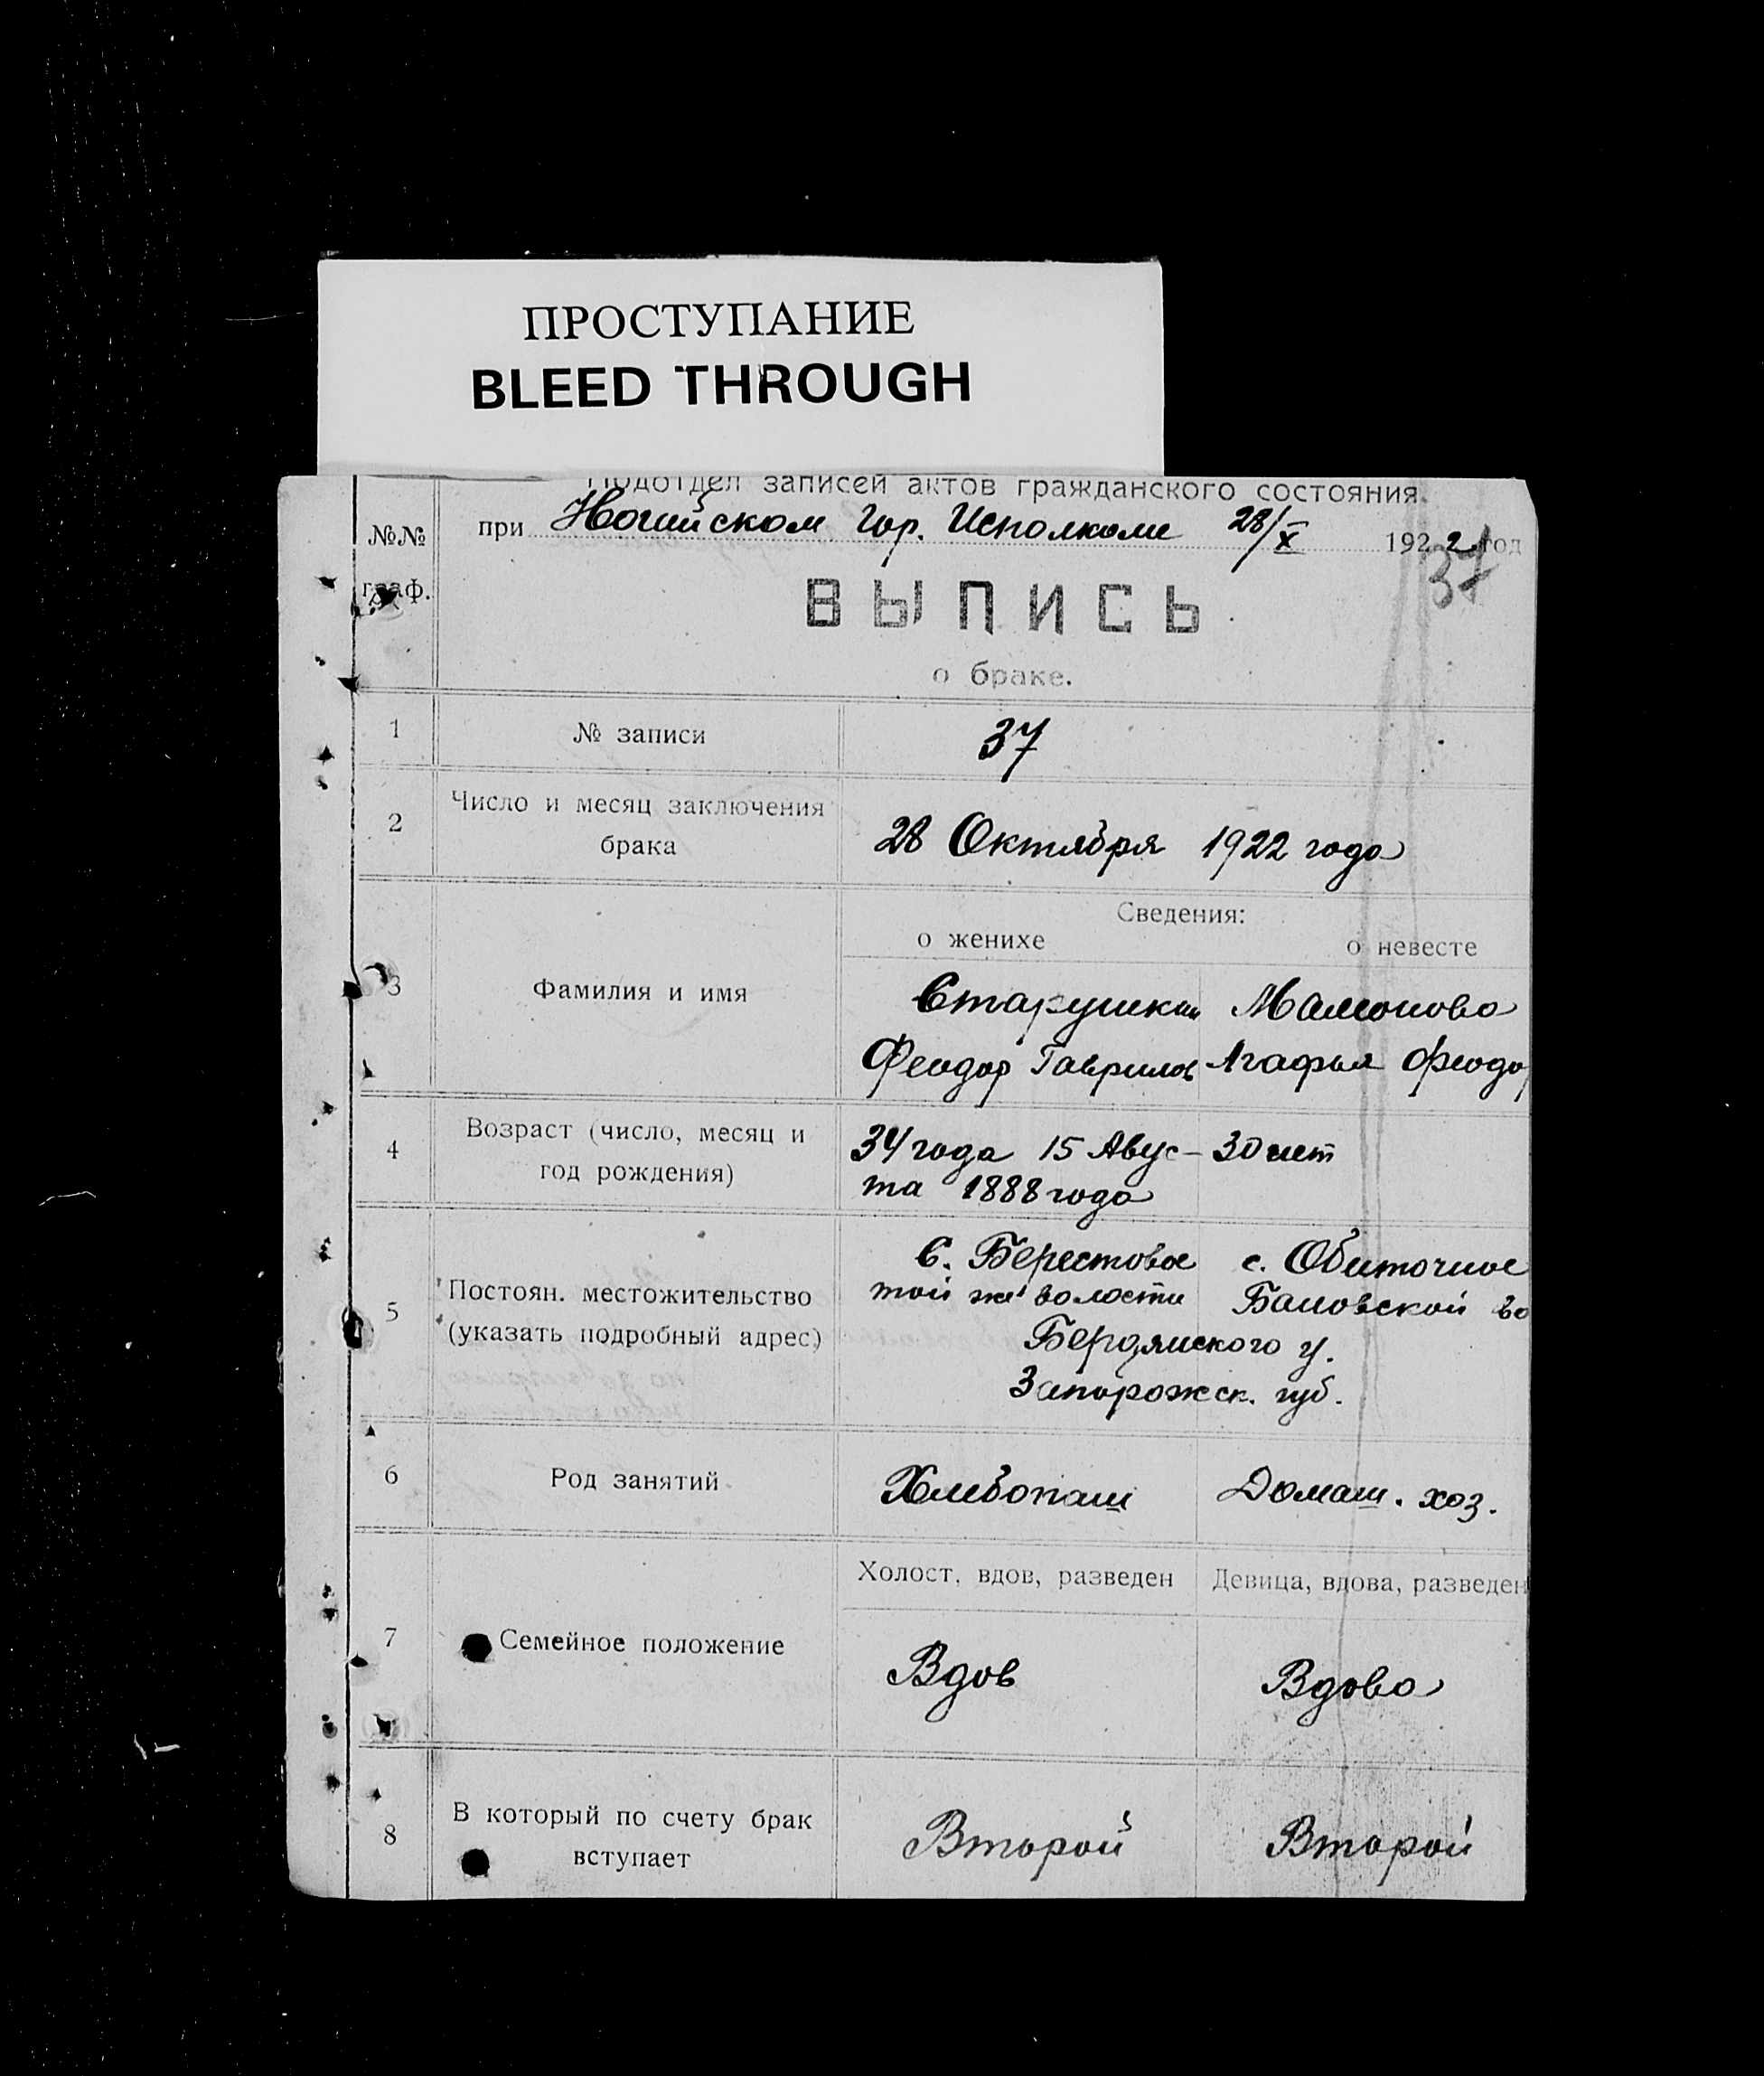 ПРОСТУПАНИЕ
BLEED THROUGH
Подотдел записей актов гражданского состояния.
№№ граф.
при Ногайском Гор. Исполкоме 28/X 1922 год
37
ВЫПИСЬ
о браке.
1 № записи 37
2 Число и месяц заключения
брака
28 Октября 1922 года
Сведения:
о женихе о невесте
3 Фамилия и имя
Старушкин Мамонова
Феодор Гаврилов Агафья Феодор
4 Возраст (число, месяц и
год рождения)
34 года 15 Авус- 30 лет
та 1888 года
5 Постоян. местожительство
(указать подробный адрес)
С. Берестовое с. Обиточное
той же волости Бановской во
Бердянского у.
Запорожск. губ.
6 Род занятий
Хлебопаш Домаш. хоз.
Холост, вдов, разведен Девица, вдова, разведен
7 Семейное положение
Вдов Вдова
8 В который по счету брак
вступает
Второй Второй